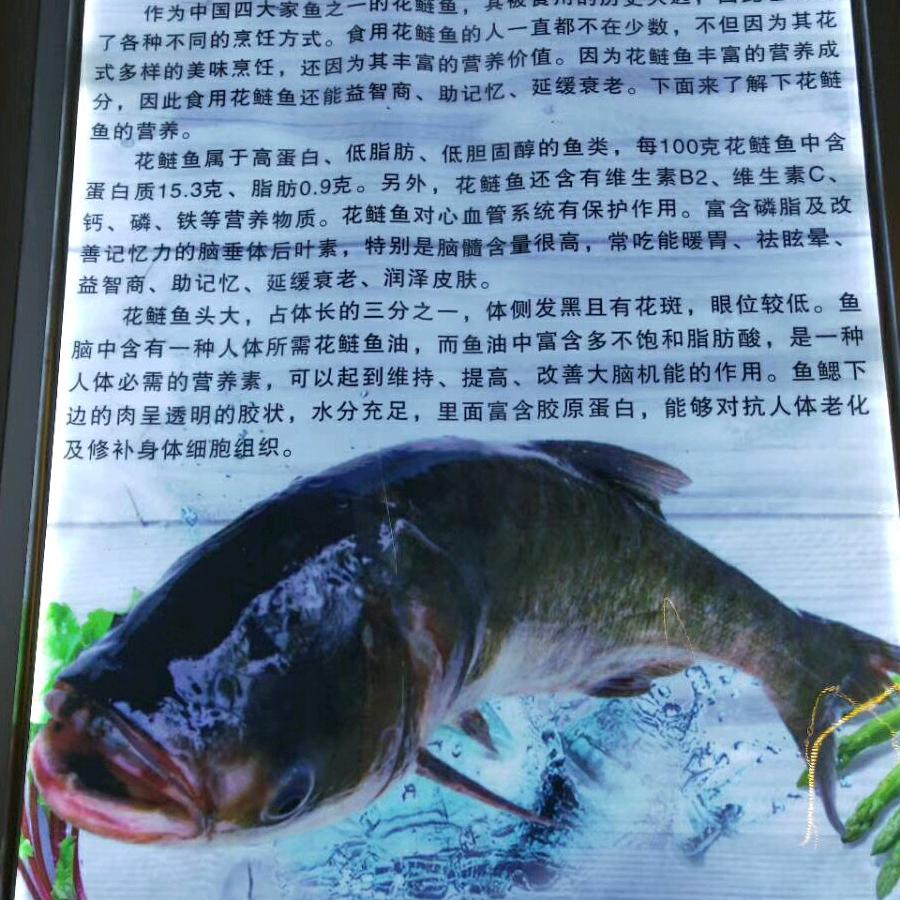 作为中国四大家鱼之一的花鲢鱼，其被食用的历史
了各种不同的烹饪方式。食用花鲢鱼的人一直都不在少数，不但因为其花
式多样的美味烹饪，还因为其丰富的营养价值。因为花鲢鱼丰富的营养成
分，因此食用花鲢鱼还能益智商、助记忆、延缓衰老。下面来了解下花鲢
鱼的营养。
花鲢鱼属于高蛋白、低脂肪、低胆固醇的鱼类，每100克花鲢鱼中含
蛋白质15.3克、脂肪0.9克。另外，花鲢鱼还含有维生素B2、维生素C、
钙、磷、铁等营养物质。花鲢鱼对心血管系统有保护作用。富含磷脂及改
善记忆力的脑垂体后叶素，特别是脑髓含量很高，常吃能暖胃、祛眩晕、
益智商、助记忆、延缓衰老、润泽皮肤。
花鲢鱼头大，占体长的三分之一，体侧发黑且有花斑，眼位较低。鱼
脑中含有一种人体所需花鲢鱼油，而鱼油中富含多不饱和脂肪酸，是一种
人体必需的营养素，可以起到维持、提高、改善大脑机能的作用。鱼鳃下
边的肉呈透明的胶状，水分充足，里面富含胶原蛋白，能够对抗人体老化
及修补身体细胞组织。